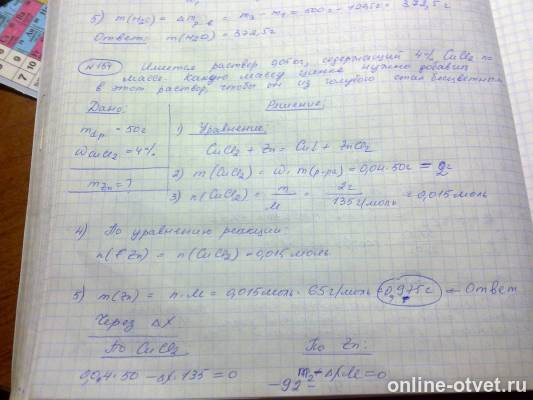 5) m(H₂O) = Δm р-в = m₂ - m₁ = 500г -
Ответ: m(H₂O) = 372,5г
№154 Имеется раствор 50г, содержащий 4% CuCl₂ по
массе. Какую массу цинка нужно добавить
в этот раствор, чтобы он из голубого стал бесцветным
Дано: Решение:
mдр = 50г
1) Уравнение:
WCuCl₂ = 4%
CuCl₂ + Zn = Cu↓ + ZnCl₂
mZn = ?
2) m(CuCl₂) = W · m(р-ра) = 0,04 · 50г = 2г
3) n(CuCl₂) = m/M = 2г/135г/моль = 0,015 моль
4) По уравнению реакции:
n(Zn) = n(CuCl₂) = 0,015 моль
5) m(Zn) = n · M = 0,015 моль · 65 г/моль = 0,975г — Ответ
Через ΔX
По CuCl₂ По Zn:
0,04 · 50 - ΔX · 135 = 0 m₂ + ΔX·M = 0
- 92 -
online-otvet.ru